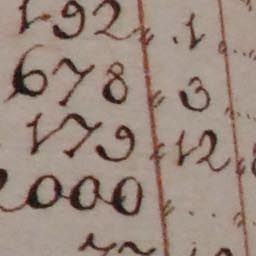 192 „ 1
678 „ 3
179 „ 12
000 „